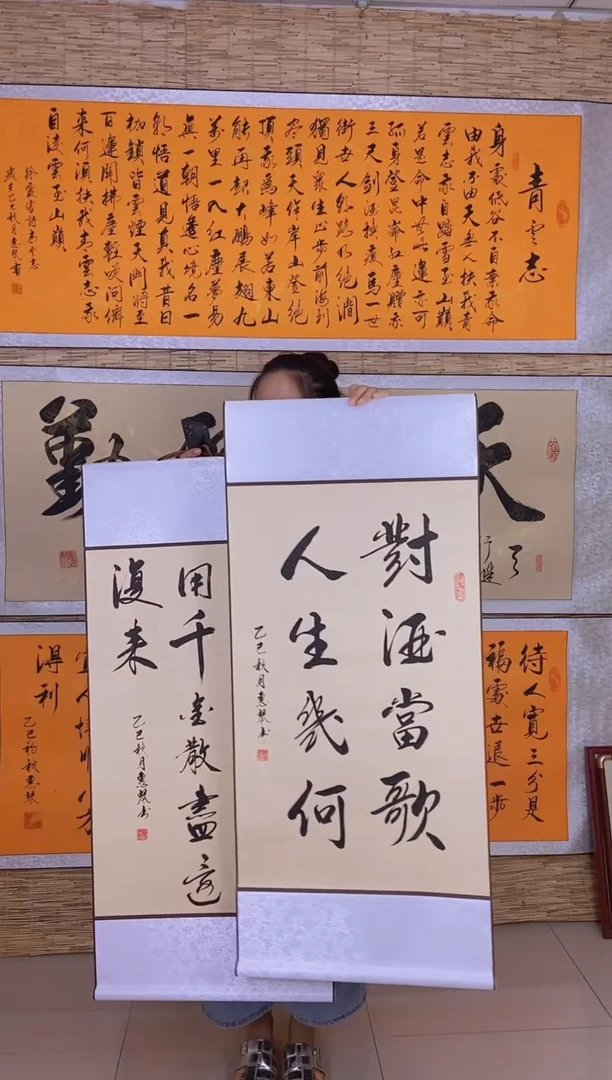 青云志
身處低谷不自棄我命
由我不由天無人扶我青
雲志我自踏雪至山巔
若是命中無此運亦可
孤身登昆崙紅塵贈我
三尺劍酒
瘦馬一世
獨見眾生止步前海到
尽頭天作岸山登絕
頂我為峰如若東山
能再起大鵬展翅九
萬里一入紅塵夢易
真一朝悟透心境名一
朝悟道見真我昔日
枷鎖皆雲煙天門將至
百運開拂塵輕嘆問
來何須扶我青雲志我
自凌雲至山巔
乙巳秋月惠琴書
天
勤
對酒當歌
人生幾何
乙巳秋月惠琴书
用千金散盡還
復来
乙巳秋月惠琴书
待人寬三分是
福處世退一步
得利
乙巳初秋惠琴